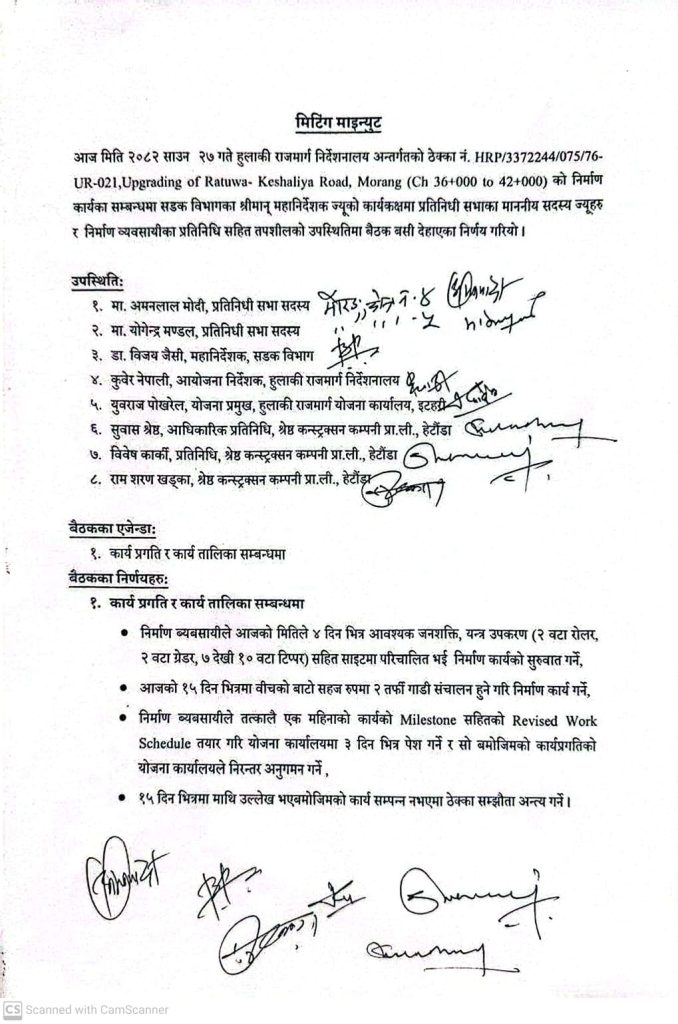 मिटिंग माइन्युट
आज मिति २०८२ साउन २७ गते हुलाकी राजमार्ग निर्देशनालय अन्तर्गतको ठेक्का नं. HRP/3372244/075/76-
UR-021,Upgrading of Ratuwa- Keshaliya Road, Morang (Ch 36+000 to 42+000) को निर्माण
कार्यका सम्बन्धमा सडक विभागका श्रीमान् महानिर्देशक ज्यूको कार्यकक्षमा प्रतिनिधी सभाका माननीय सदस्य ज्यूहरु
र निर्माण व्यवसायीका प्रतिनिधि सहित तपशीलको उपस्थितिमा बैठक बसी देहाएका निर्णय गरियो ।
उपस्थिति:
१. मा. अमनलाल मोदी, प्रतिनिधी सभा सदस्य मोरङ क्षेत्र नं. ४
२. मा. योगेन्द्र मण्डल, प्रतिनिधी सभा सदस्य
३. डा. विजय जैसी, महानिर्देशक, सडक विभाग
४. कुवेर नेपाली, आयोजना निर्देशक, हुलाकी राजमार्ग निर्देशनालय
५. युवराज पोखरेल, योजना प्रमुख, हुलाकी राजमार्ग योजना कार्यालय, इटहरी
६. सुवास श्रेष्ठ, आधिकारिक प्रतिनिधि, श्रेष्ठ कन्स्ट्रक्सन कम्पनी प्रा.ली., हेटौंडा
७. विवेष कार्की, प्रतिनिधि, श्रेष्ठ कन्स्ट्रक्सन कम्पनी प्रा.ली., हेटौंडा
८. राम शरण खड्का, श्रेष्ठ कन्स्ट्रक्सन कम्पनी प्रा.ली., हेटौंडा
बैठकका एजेन्डा:
१. कार्य प्रगति र कार्य तालिका सम्बन्धमा
बैठकका निर्णयहरु:
१. कार्य प्रगति र कार्य तालिका सम्बन्धमा
• निर्माण ब्यबसायीले आजको मितिले ४ दिन भित्र आवश्यक जनशक्ति, यन्त्र उपकरण (२ वटा रोलर,
२ वटा ग्रेडर, ७ देखी १० वटा टिप्पर) सहित साइटमा परिचालित भई निर्माण कार्यको सुरुवात गर्ने,
• आजको १५ दिन भित्रमा वीचको बाटो सहज रुपमा २ तर्फी गाडी संचालन हुने गरि निर्माण कार्य गर्ने,
• निर्माण ब्यबसायीले तत्कालै एक महिनाको कार्यको Milestone सहितको Revised Work
Schedule तयार गरि योजना कार्यालयमा ३ दिन भित्र पेश गर्ने र सो बमोजिमको कार्यप्रगतिको
योजना कार्यालयले निरन्तर अनुगमन गर्ने ,
• १५ दिन भित्रमा माथि उल्लेख भएबमोजिमको कार्य सम्पन्न नभएमा ठेक्का सम्झौता अन्त्य गर्ने ।
CS Scanned with CamScanner